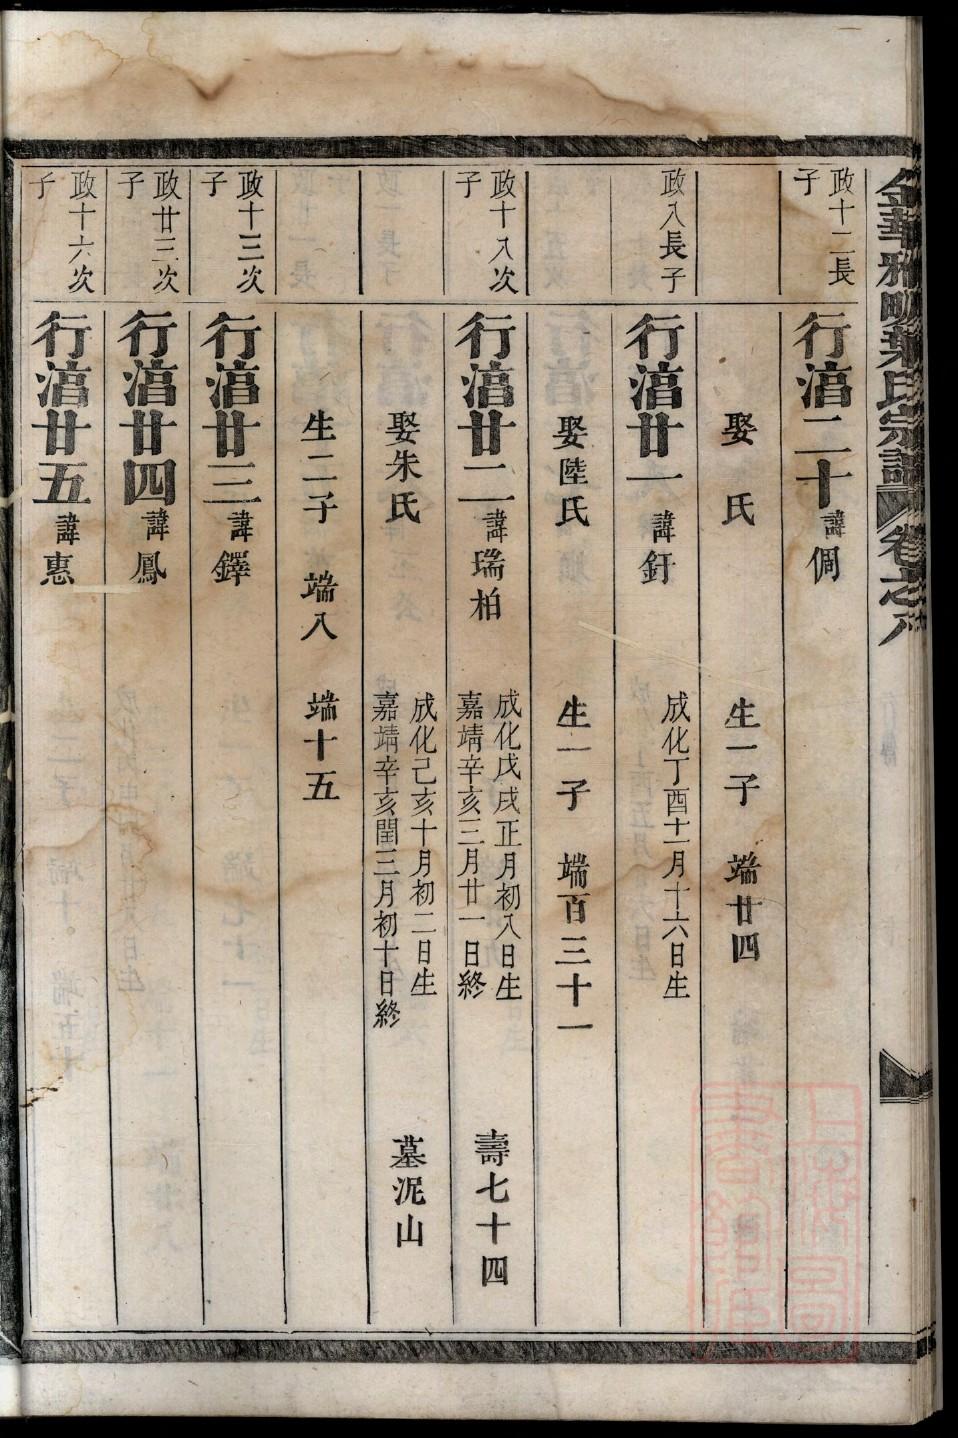 金華雅畈葉氏宗譜 卷之八
政十二長子
行湇二十 諱倜
娶 氏 生一子 端廿四
政八長子
行湇廿一 諱釪 成化丁酉十一月十六日生
娶陸氏 生一子 端百三十一
政十八次子
行湇廿二 諱瑞柏 成化戊戌正月初八日生 嘉靖辛亥三月廿一日終 壽七十四
娶朱氏 成化己亥十月初二日生 嘉靖辛亥閏三月初十日終 墓泥山
生二子 端八 端十五
政十三次子
行湇廿三 諱鐸
政廿三次子
行湇廿四 諱鳳
政十六次子
行湇廿五 諱惠